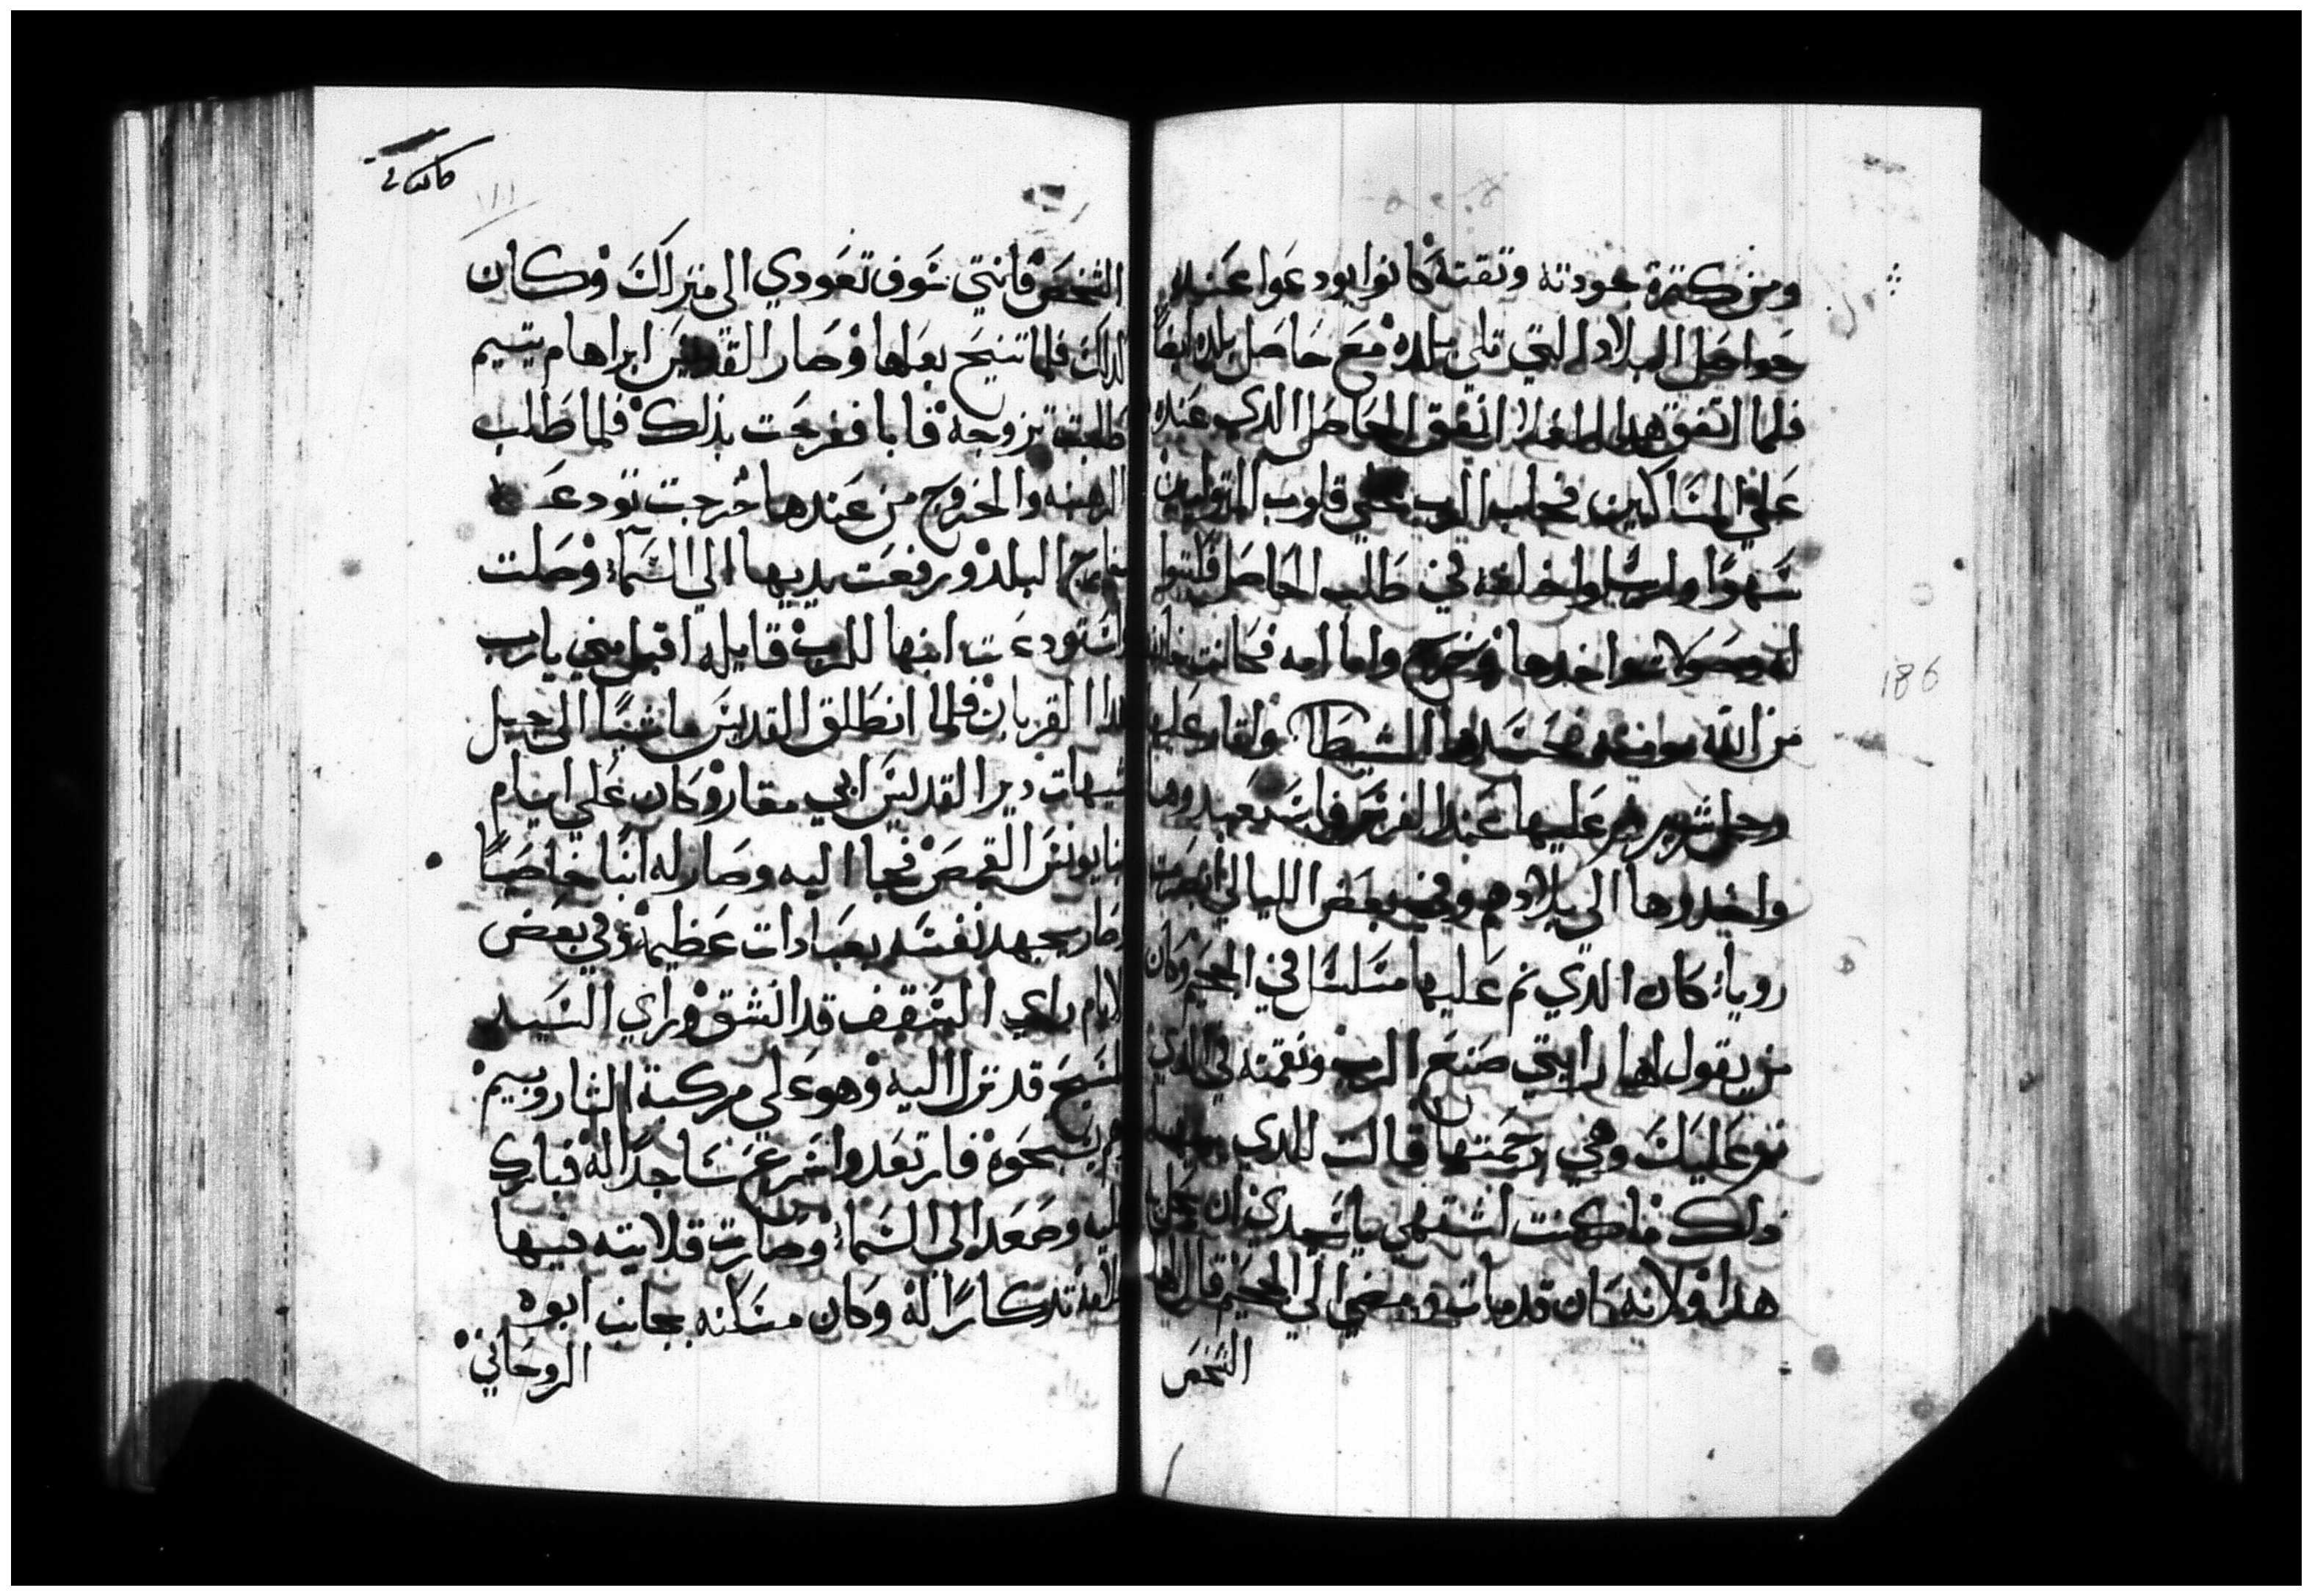 ومن كترة جودته وتقته كانوا يودعوا عنده
حواصل البلاد التي تلي بلده مع حاصل بلده ايضا
فلما اتفق هدا الغلا انفق الحاصل الدي عنده
علي المساكين فجلب الرب علي قلوب المتوليين
سهوا وارسلوا خلفه في طلب الحاصل فكتبوا
له وصولات واخدها وخرج واما امه فكانت خايفه
من الله فحسدها الشيطان واقار عليها
رجل شرير عليها عند الفرس فاستعبدوها
واخدوها الي بلادهم وفي بعض الليالي ابصرت
رويا كان الدي نم عليها مسلسل في الجحيم وكان
من يقول لها رايتي صنع الرب ونقمته في الدي
نم عليك وهي رحمتها قالت للدي
ما كنت اشتهي يا سيدي ان يحل
هدا ولانه كان قد مات ومضي الي الجحيم قال لها
الشخص
186
١١١
الشخص فانتي سوف تعودي الي منزلك وكان
لدلك فلما تنيح بعلها وصار القديس ابراهام يتيم
طلبت تزوجه فابا ففرحت بذلك فلما طلب
الرهبنه والخروج من عندها خرجت تودعه
خارج البلد ورفعت يديها الي السماء وصلت
واستودعت ابنها للرب قايله اقبل مني يارب
هدا القربان فلما انطلق القديس ماشيا الي جبل
شيهات دير القديس ابي مقار وكان علي ايام
انبا يونس القمص فجاا اليه وصار له ابنا خاصا
وصار يجهد نفسه بعبادات عظيمة وفي بعض
الايام راي السقف قد انشق وراي السيد
المسيح قد نزل اليه وهو علي مركبة الشاروبيم
وهم يسبحوه فارتعد واسرع ساجدا له فبارك
عليه وصعد الي السماء وصارت قلايته فيها
تدكارا له وكان مسكنه بجانب ابوه
الروحاني